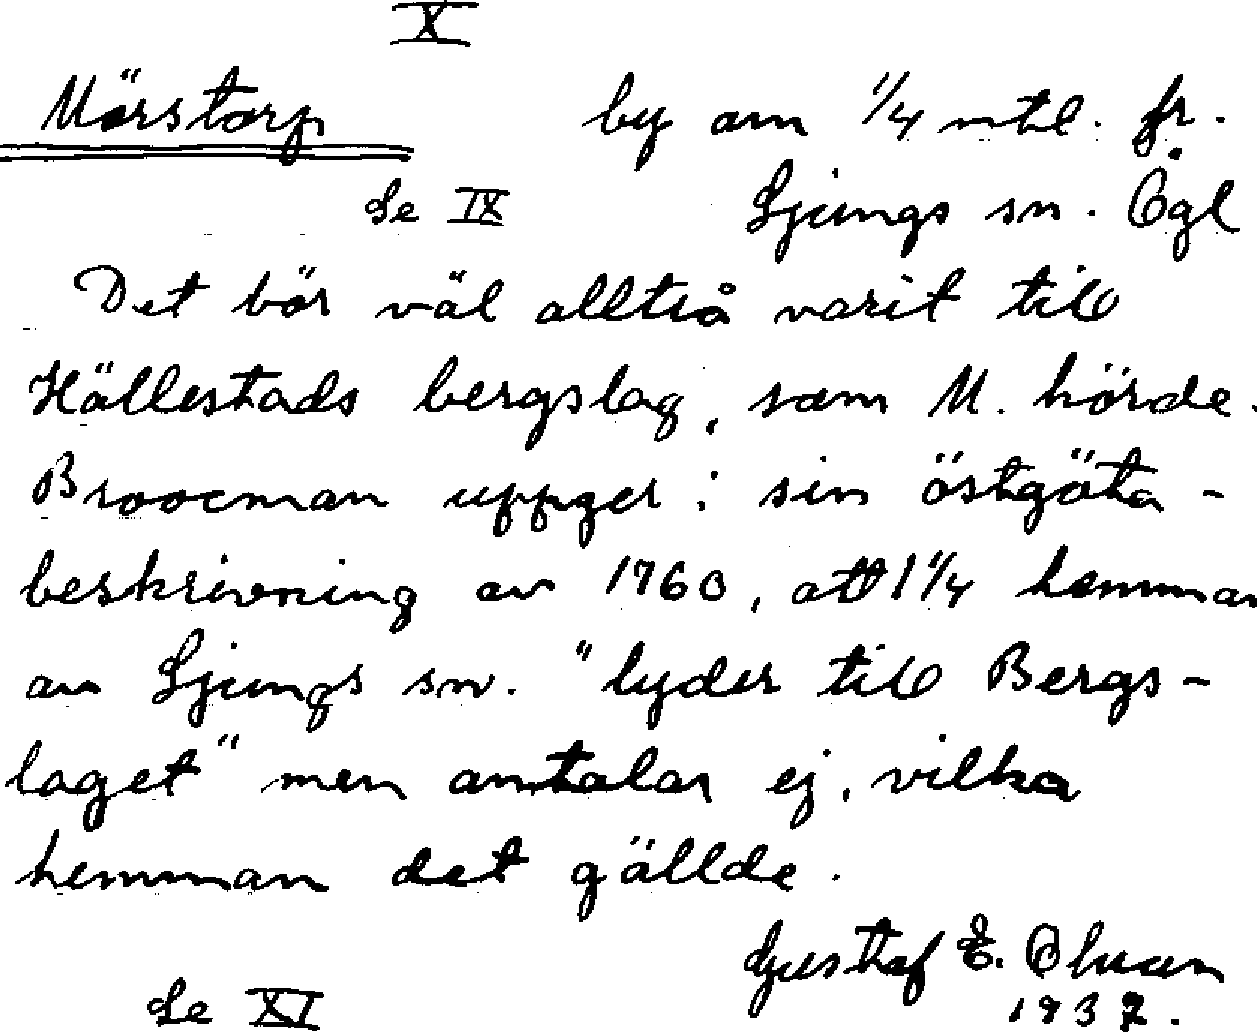 X
Mörstorp by om 1/4 mtl. fr.
Se IX Ljungs sn. Ögl
Det bör väl alltså varit till
Hällestads bergslag, som M. hörde.
Broocman uppger i sin östgöta-
beskrivning av 1760, att 1 1/4 hemman
av Ljungs sn. "lyder till Bergs-
laget" men omtalar ej, vilka
hemman det gällde.
Gustaf E.
Se XI 1937.